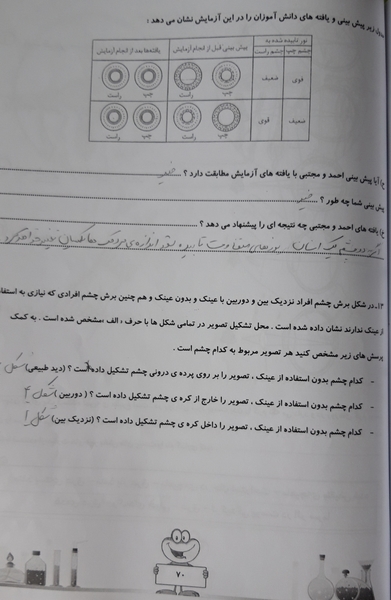 جدول زیر پیش بینی و یافته های دانش آموزان را در این آزمایش نشان می دهد :
نور تابیده شده به
پیش بینی قبل از انجام آزمایش
یافته‌ها بعد از انجام آزمایش
چشم چپ
چشم راست
قوی
ضعیف
چپ
راست
چپ
راست
ضعیف
قوی
چپ
راست
چپ
راست
ج) آیا پیش بینی احمد و مجتبی با یافته های آزمایش مطابقت دارد ؟ خیر
پیش بینی شما چه طور ؟ خیر
ح) یافته های احمد و مجتبی چه نتیجه ای را پیشنهاد می دهد ؟
نورهای متفاوت تابیده شود اندازه‌ی مردمک ها یکسان
۱۳- در شکل برش چشم افراد نزدیک بین و دوربین با عینک و بدون عینک و هم چنین برش چشم افرادی که نیازی به استفاده
از عینک ندارند نشان داده شده است . محل تشکیل تصویر در تمامی شکل ها با حرف « الف » مشخص شده است . به کمک
پرسش های زیر مشخص کنید هر تصویر مربوط به کدام چشم است .
- کدام چشم بدون استفاده از عینک ، تصویر را بر روی پرده ی درونی چشم تشکیل داده است ؟ (دید طبیعی) شکل
- کدام چشم بدون استفاده از عینک ، تصویر را خارج از کره ی چشم تشکیل داده است ؟ ( دوربین ) شکل ۴
- کدام چشم بدون استفاده از عینک ، تصویر را داخل کره ی چشم تشکیل داده است ؟ (نزدیک بین) شکل ۱
۷۰